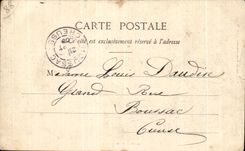 CARTE POSTALE
Ce côté est exclusivement réservé à l'adresse
BOUSSAC CREUSE
Madame Louis Daudon
Grand Rue
Boussac
Creuse